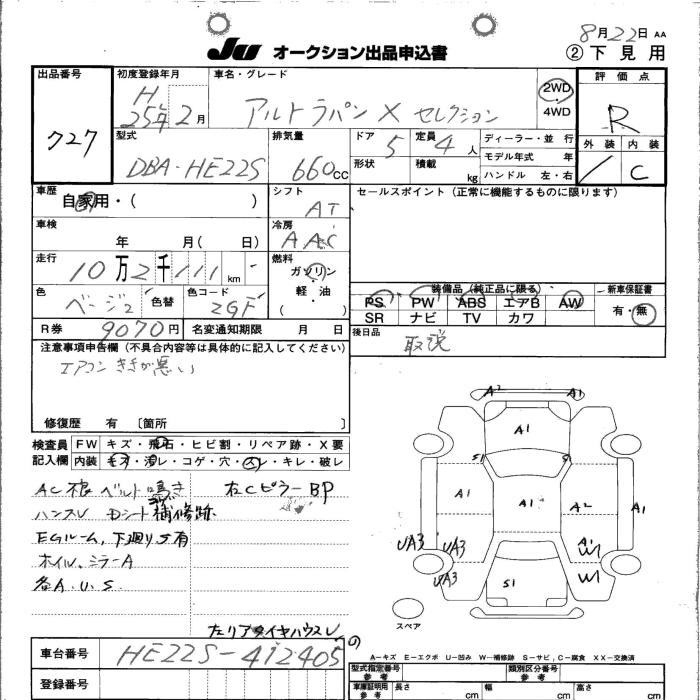 8月22日 AA
JU オークション出品申込書
② 下見用
出品番号
727
初度登録年月
H
25年2月
車名・グレード
アルトラパン X セレクション
2WD
4WD
評価点
R
外装 内装
/ C
型式
DBA-HE22S
排気量
660cc
ドア 5
形状
定員 4人
積載 kg
ディーラー・並行
モデル年式 年
ハンドル 左・右
車歴
自家用・( )
シフト
AT
セールスポイント(正常に機能するものに限ります)
車検
年 月( 日)
冷房
AAC
走行
10万2千111km
燃料
ガソリン
軽・油
( )
色
ベージュ
色替
色コード
ZGF
装備品(純正品に限る)
PS PW ABS エアB AW
SR ナビ TV カワ
新車保証書
有・無
R券 9070円
名変通知期限 月 日
後日品
取説
注意事項申告欄(不具合内容等は具体的に記入してください)
エアコンききが悪い
修復歴 有 〔箇所 〕
検査員
記入欄
FW キズ・飛石・ヒビ割・リペア跡・X要
内装 モオ・汚レ・コゲ・穴・スレ・キレ・破レ
AC根 ベルト鳴き
右CピラーBP
コゲ
ハンスレ Dシート補修跡
EGルーム、下廻りS有
ホイル、ミラーA
各A.U.S.
左リアタイヤハウスU
A2
A1
A1
S1
S1
A1
A1
A2
A1
UA3
UA3
A1
W1
UA3
W1
S1
スペア
の
A-キズ E-エクボ U-凹み W-補修跡 S-サビ,C-腐食 XX-交換済
車台番号
HE22S-412405
登録番号
型式指定番号
参考
類別区分番号
参考
車庫証明用
参考
長さ cm
幅 cm
高さ cm